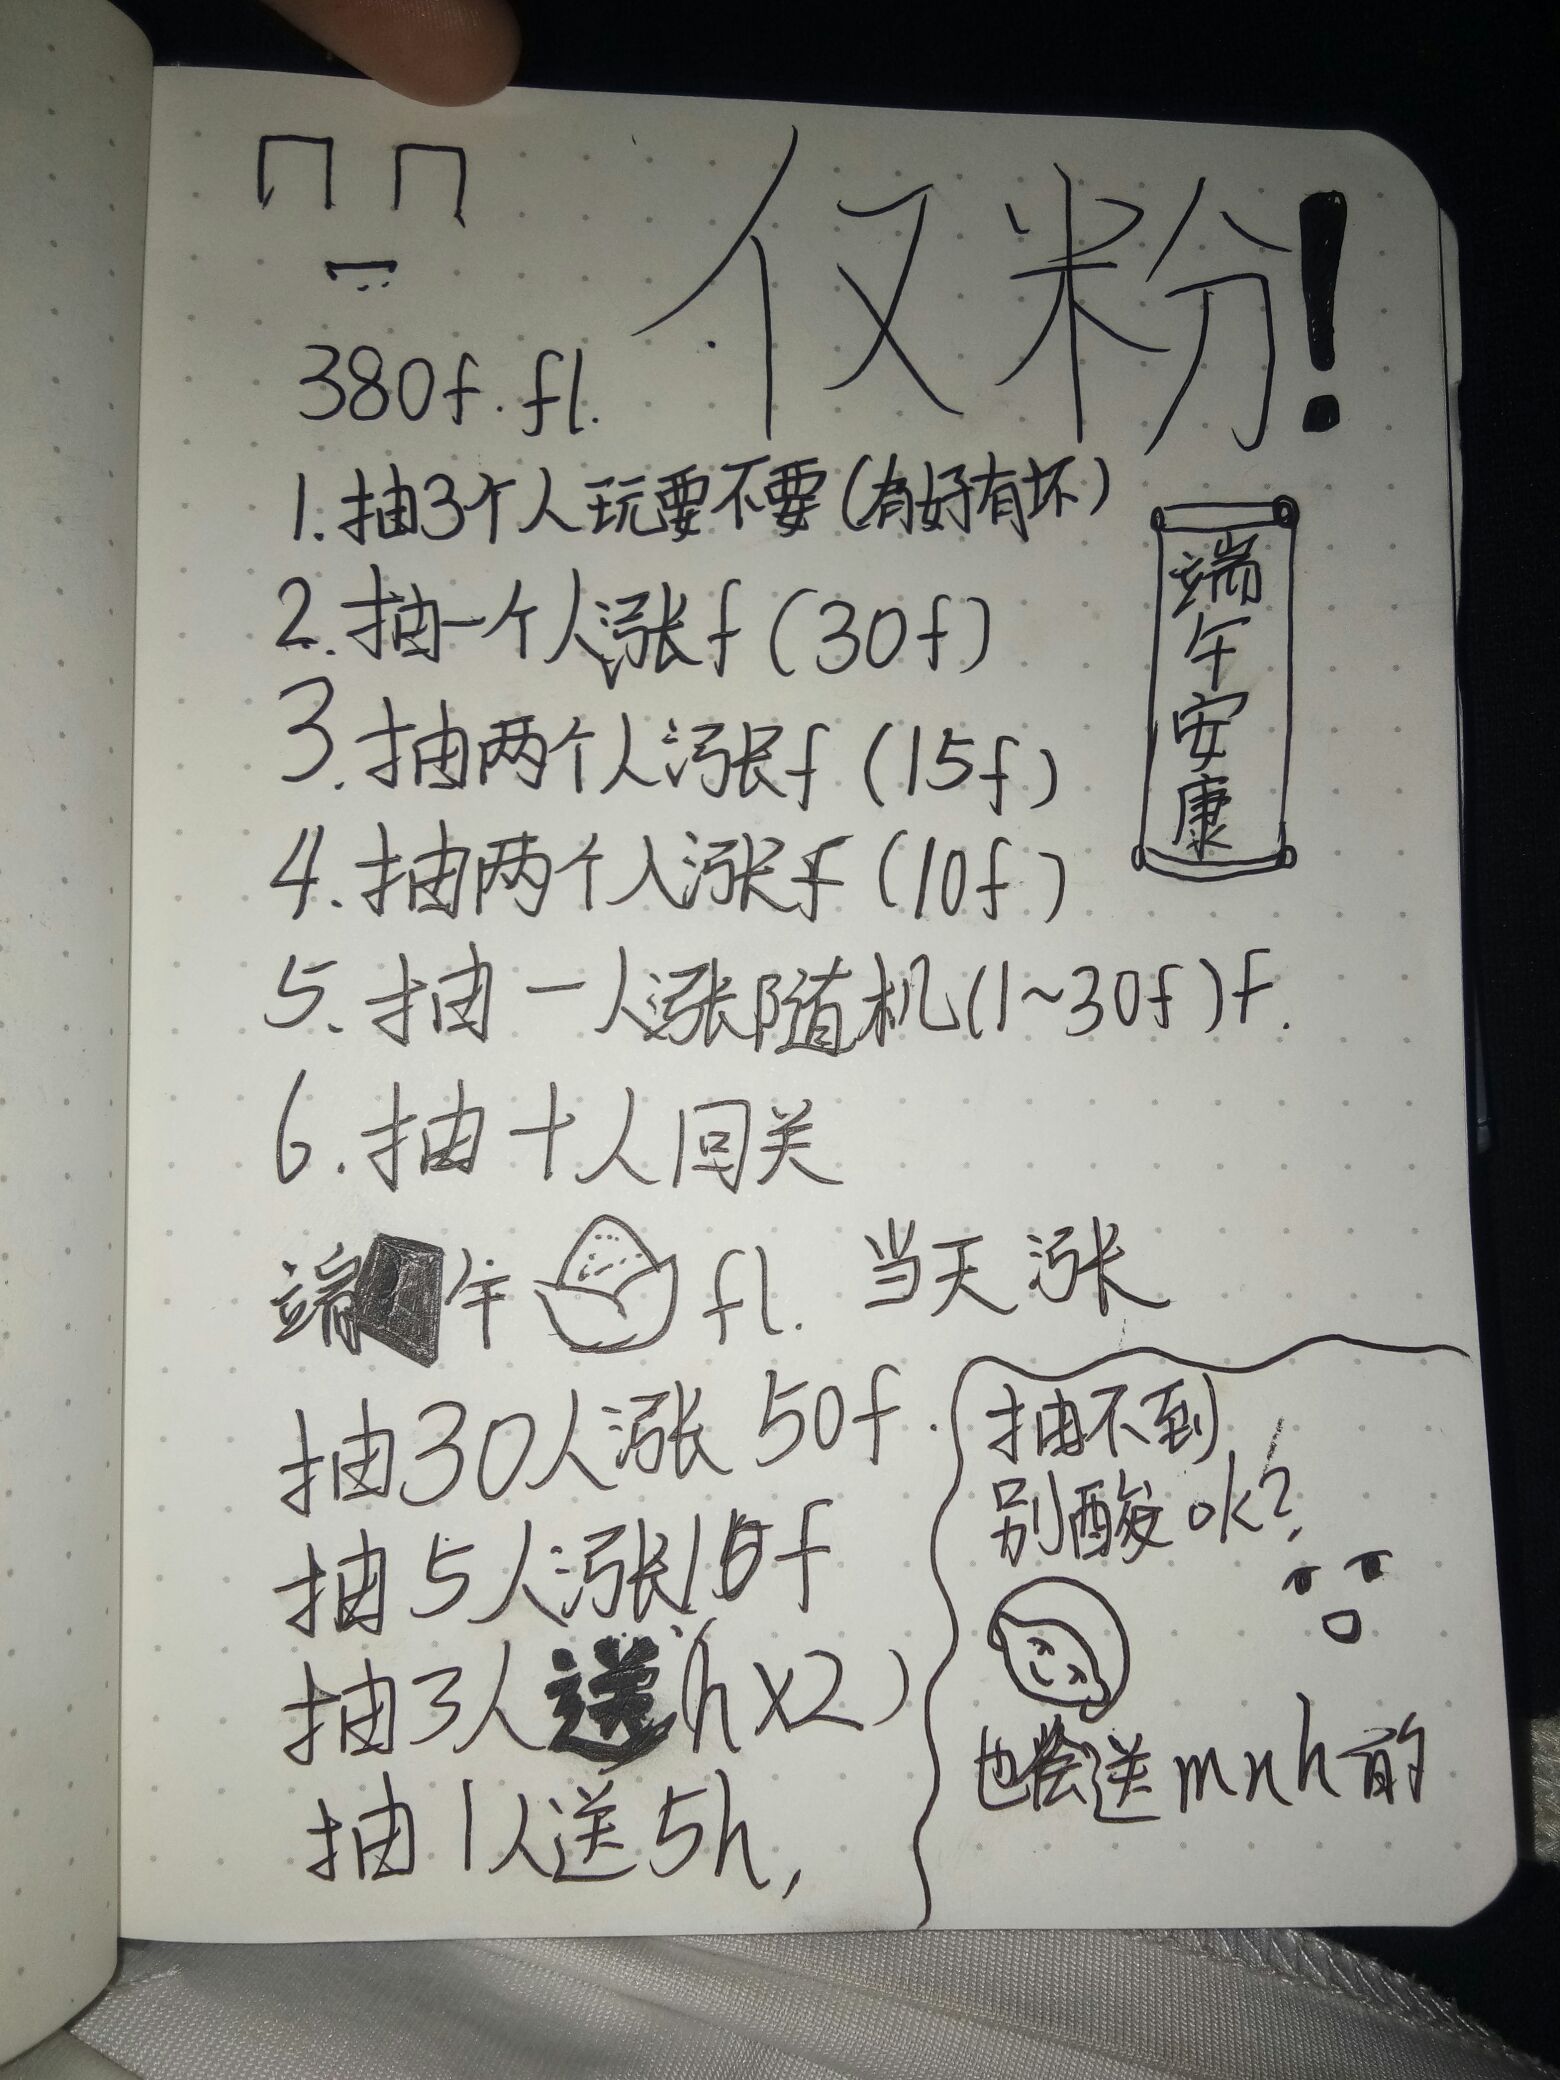 仅粉!
380f.fl.
1.抽3个人玩要不要(有好有坏)
2.抽一个人涨f(30f)
3.抽两个人涨f(15f)
4.抽两个人涨f(10f)
5.抽一人涨随机(1~30f)f.
6.抽十人闯关
端午安康
端午 fl. 当天涨
抽30人涨50f.
抽5人涨15f
抽3人送(h×2)
抽1人送5h,
抽不到
别酸ok?
也会送mnh前